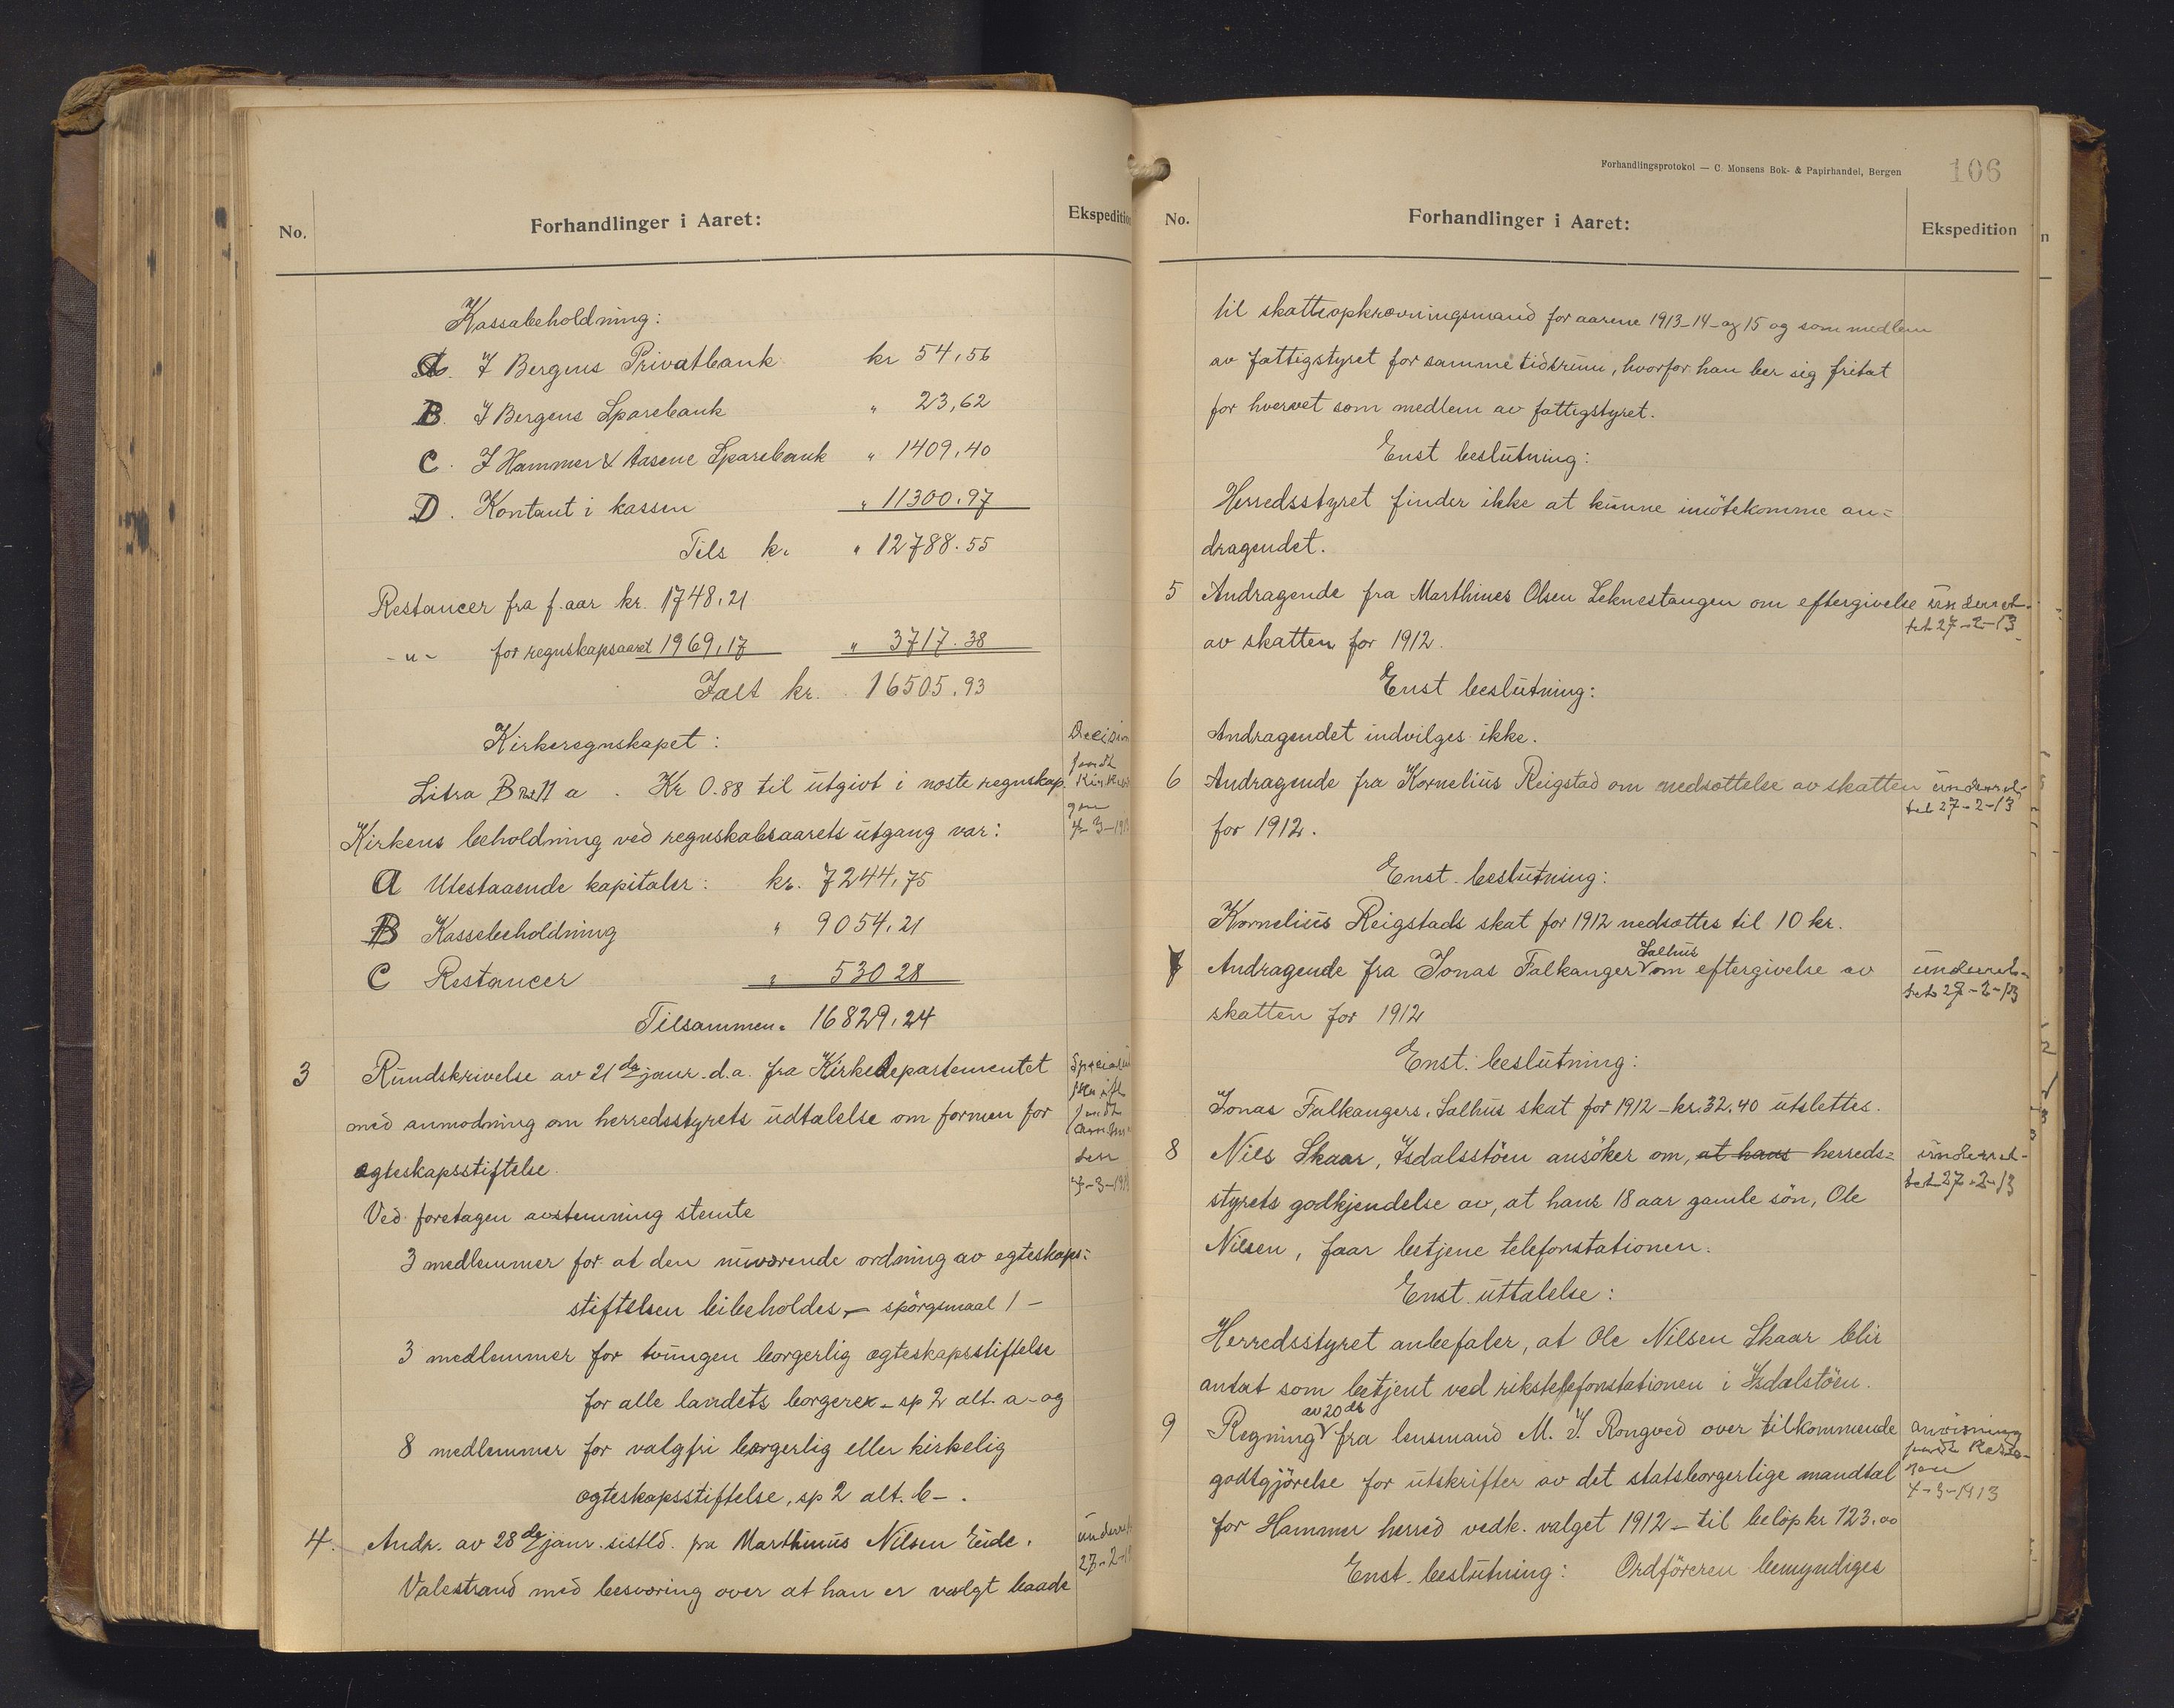 No.
Forhandlinger i Aaret:
Ekspedition
Kassabeholdning:
A. I Bergens Privatbank kr 54,56
B. I Bergens Sparebank " 23,62
C. I Hammer & Aasene Sparebank " 1409,40
D. Kontant i kassen " 11300.97
Tils kr. " 12788.55
Restancer fra f. aar kr. 1748,21
-"- for regnskapsaaret 1969,17 " 3717.38
Ialt kr. 16505.93
Kirkeregnskapet:
Litra B a. Kr 0.88 til utgivt i næste regnskap.
Kirkens beholdning ved regnskabsaarets utgang var:
A Utestaaende kapitaler: kr. 7244,75
B Kassebeholdning " 9054,21
C Restancer " 530 28
Tilsammen " 16829,24
3 Rundskrivelse av 21de janr. d.a. fra Kirkedepartementet
med anmodning om herredsstyrets udtalelse om formen for
egteskapsstiftelse.
Ved foretagen avstemning stemte
3 medlemmer for at den nuværende ordning av egteskaps=
stiftelsen bibeholdes, – spörgsmaal 1 –
3 medlemmer for tvungen borgerlig ægteskapsstiftelse
for alle landets borgerer – sp 2 alt. a – og
8 medlemmer for valgfri borgerlig eller kirkelig
ægteskapsstiftelse, sp 2 alt. b – .
4. Andr. av 28de janr. sistld. fra Marthinus Nilsen Eide,
Valestrand med besværing over at han er valgt baade
27-2-
Forhandlingsprotokol — C. Monsens Bok- & Papirhandel, Bergen
106
No.
Forhandlinger i Aaret:
Ekspedition
til skatteopkrævningsmand for aarene 1913-14- og 15 og som medlem
av fattigstyret for samme tidsrum, hvorfor han ber sig fritat
for hvervet som medlem av fattigstyret.
Enst beslutning:
Herredsstyret finder ikke at kunne imötekomme an=
dragendet.
5 Andragende fra Marthines Olsen Leknestangen om eftergivelse underret-
av skatten for 1912. tet 27-2-13
Enst beslutning:
Andragendet indvilges ikke.
6 Andragende fra Kornelius Reigstad om nedsættelse av skatten underret-
tet 27-2-13
for 1912.
Enst. beslutning:
Kornelius Reigstads skat for 1912 nedsættes til 10 kr.
7 Andragende fra Jonas Falkanger Salhus om eftergivelse av underret-
tet 27-2-13
skatten for 1912
Enst. beslutning:
Jonas Falkangers, Salhus skat for 1912 – kr. 32,40 utslettes.
8 Nils Skaar, Isdalsstöen ansöker om, at hans herreds= underret-
styrets godkjendelse av, at hans 18 aar gamle sön, Ole tet 27-2-13
Nilsen, faar betjene telefonstationen.
Enst. uttalelse:
Herredsstyret anbefaler, at Ole Nilsen Skaar blir
antat som betjent ved rikstelefonstationen i Isdalstöen.
9 Regning av 20 ds fra lensmand M. J. Rongved over tilkommende anvisning
godtgjörelse for utskrifter av det statsborgerlige mandtal
4-3-1913
for Hammer herred vedk. valget 1912 – til beløp kr 123.00
Enst. beslutning: Ordföreren bemyndiges